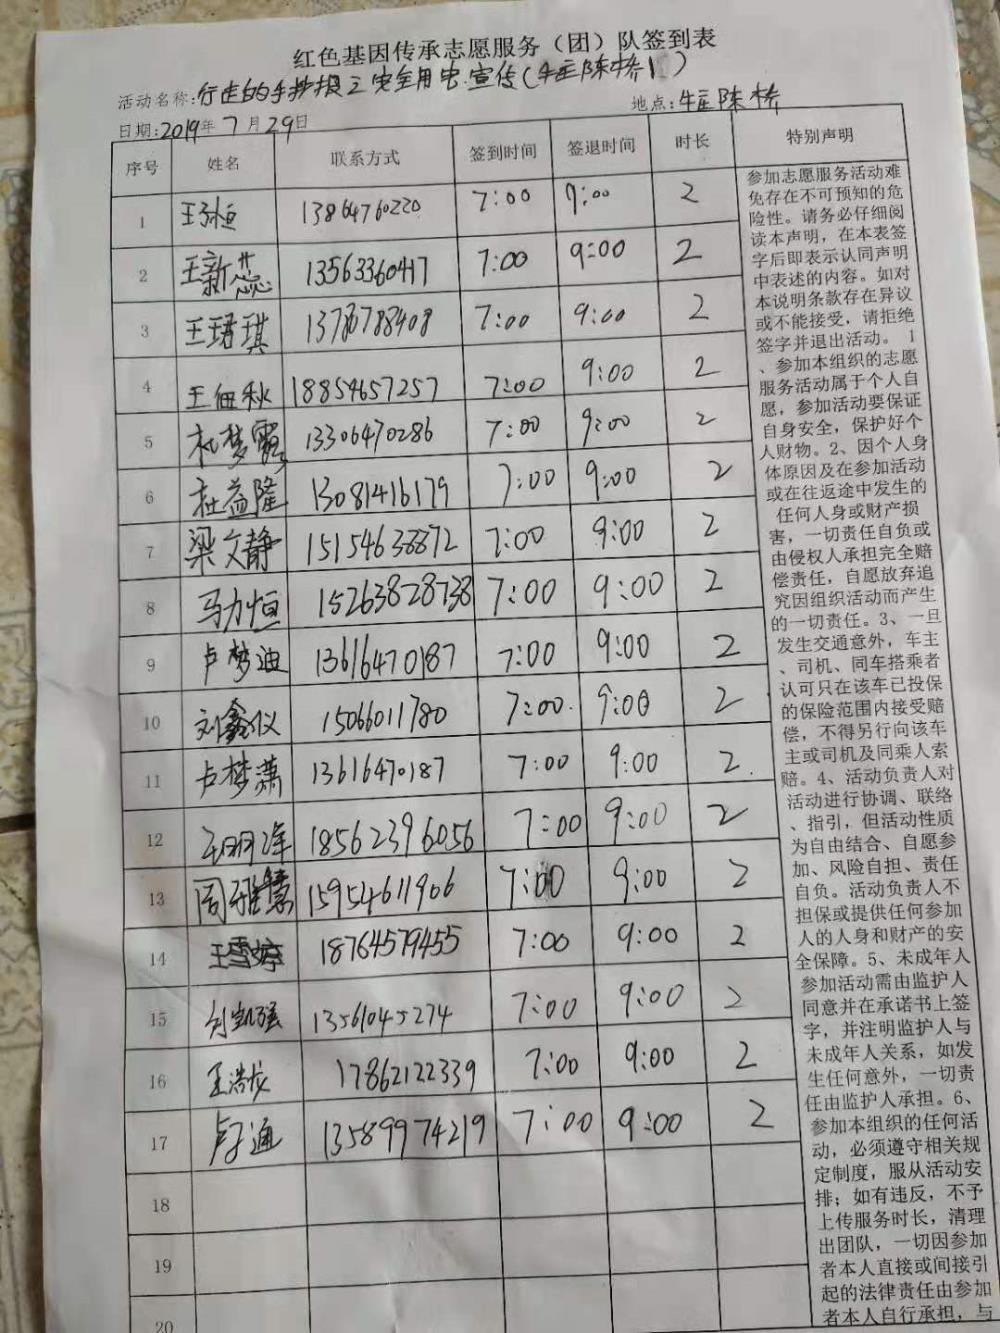 红色基因传承志愿服务（团）队签到表
活动名称：行走的手抄报之安全用电宣传（牛庄陈桥）
日期：2019年7月29日 地点：牛庄陈桥
序号 姓名 联系方式 签到时间 签退时间 时长 特别声明
1 王子恒 13864760220 7:00 9:00 2
2 王新蕊 13563360417 7:00 9:00 2
3 王珺琪 7:00 9:00 2
4 王佃秋 18854657257 7:00 9:00 2
5 杜梦露 13306470286 7:00 9:00 2
6 杜益隆 13081416179 7:00 9:00 2
7 梁文静 15154638872 7:00 9:00 2
8 马力恒 15263828738 7:00 9:00 2
9 卢梦迪 13616470187 7:00 9:00 2
10 刘鑫仪 15066011780 7:00 9:00 2
11 卢梦潇 13616470187 7:00 9:00 2
12 18562396056 7:00 9:00 2
13 周雅慧 15954611906 7:00 9:00 2
14 王雪婷 18764579455 7:00 9:00 2
15 刘凯强 13561045274 7:00 9:00 2
16 王浩龙 17862122339 7:00 9:00 2
17 卢子通 13589974219 7:00 9:00 2
18
19
20
参加志愿服务活动难
免存在不可预知的危
险性。请务必仔细阅
读本声明，在本表签
字后即表示认同声明
中表述的内容。如对
本说明条款存在异议
或不能接受，请拒绝
签字并退出活动。 1
、参加本组织的志愿
服务活动属于个人自
愿，参加活动要保证
自身安全，保护好个
人财物。2、因个人身
体原因及在参加活动
或在往返途中发生的
任何人身或财产损
害，一切责任自负或
由侵权人承担完全赔
偿责任，自愿放弃追
究因组织活动而产生
的一切责任。3、一旦
发生交通意外，车主
、司机、同车搭乘者
认可只在该车已投保
的保险范围内接受赔
偿，不得另行向该车
主或司机及同乘人索
赔。4、活动负责人对
活动进行协调、联络
、指引，但活动性质
为自由结合、自愿参
加、风险自担、责任
自负。活动负责人不
担保或提供任何参加
人的人身和财产的安
全保障。5、未成年人
参加活动需由监护人
同意并在承诺书上签
字，并注明监护人与
未成年人关系，如发
生任何意外，一切责
任由监护人承担。6、
参加本组织的任何活
动，必须遵守相关规
定制度，服从活动安
排；如有违反，不予
上传服务时长，清理
出团队，一切因参加
者本人直接或间接引
起的法律责任由参加
者本人自行承担，与